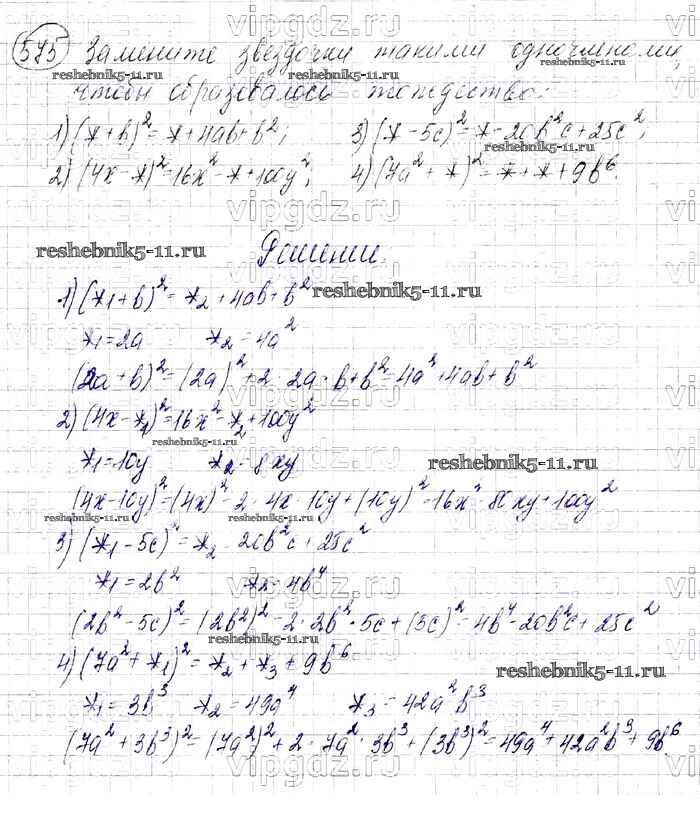 575 Замените звездочки такими одночленами,
чтобы образовалось тождество:
1) (* + b)² = * + 4ab + b²;
3) (* - 5c)² = * - 20b²c + 25c²;
2) (4x - *)² = 16x² - * + 100y²;
4) (7a² + *)² = * + * + 9b⁶.
Решение.
1) (*₁ + b)² = *₂ + 4ab + b²
*₁ = 2a *₂ = 4a²
(2a + b)² = (2a)² + 2 · 2a · b + b² = 4a² + 4ab + b²
2) (4x - *₁)² = 16x² - *₂ + 100y²
*₁ = 10y *₂ = 80xy
(4x - 10y)² = (4x)² - 2 · 4x · 10y + (10y)² = 16x² - 80xy + 100y²
3) (*₁ - 5c)² = *₂ - 20b²c + 25c²
*₁ = 2b² *₂ = 4b⁴
(2b² - 5c)² = (2b²)² - 2 · 2b² · 5c + (5c)² = 4b⁴ - 20b²c + 25c²
4) (7a² + *₁)² = *₂ + *₃ + 9b⁶
*₁ = 3b³ *₂ = 49a⁴ *₃ = 42a²b³
(7a² + 3b³)² = (7a²)² + 2 · 7a² · 3b³ + (3b³)² = 49a⁴ + 42a²b³ + 9b⁶
reshebnik5-11.ru
vipgdz.ru